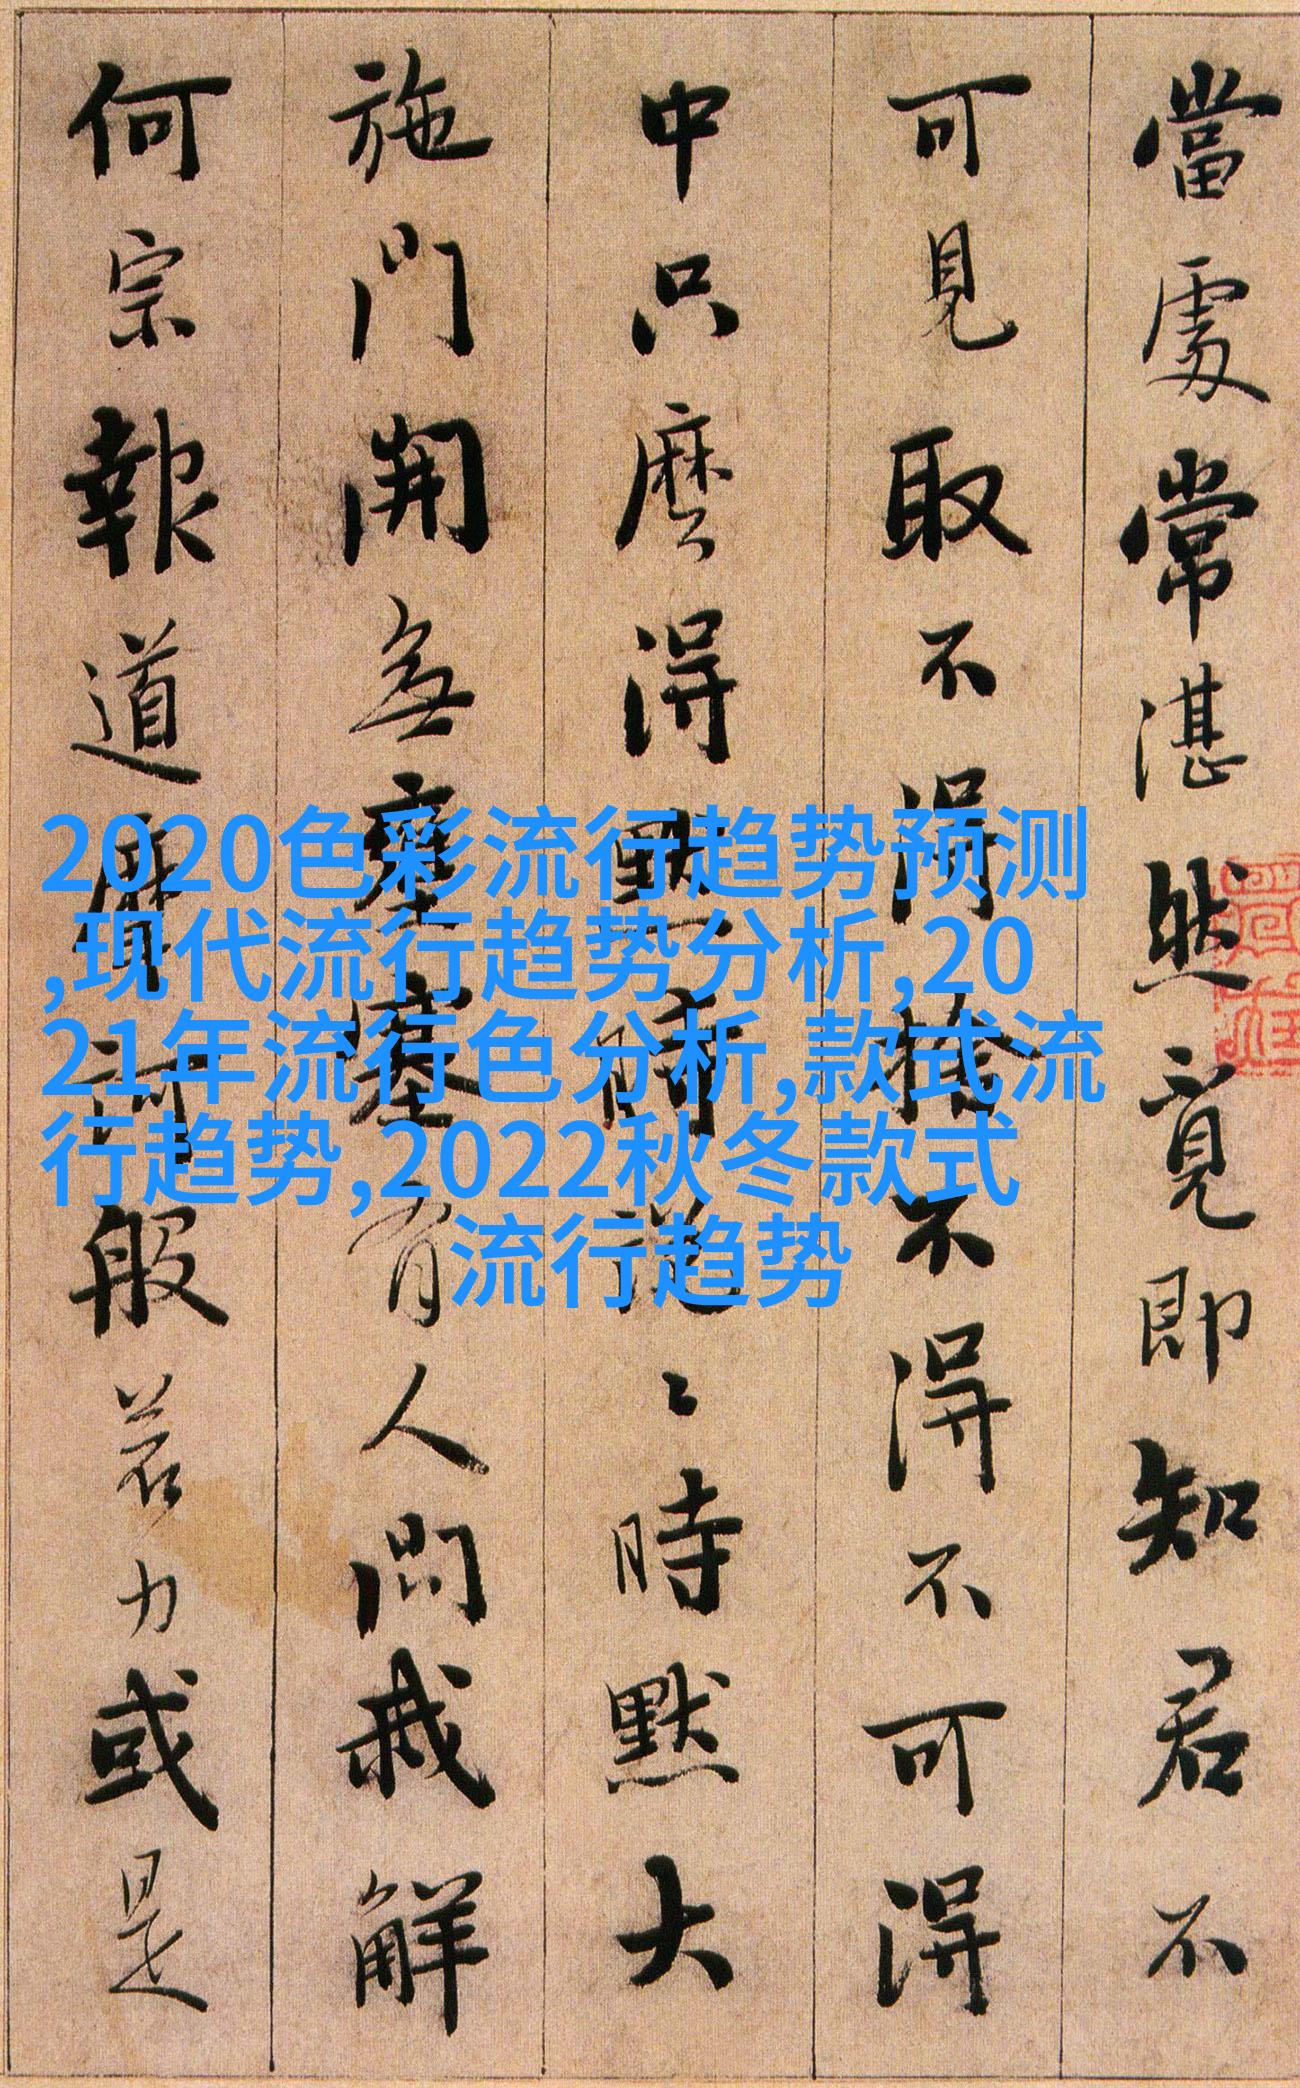 當處常湛然覓即知君不
可見取不得捨不得不可得
中只麼得默時說〻時默大
施門開無壅塞有人問我解
何宗報道摩訶般若力或是
2020色彩流行趋势预测
,现代流行趋势分析,20
21年流行色分析,款式流
行趋势,2022秋冬款式
流行趋势